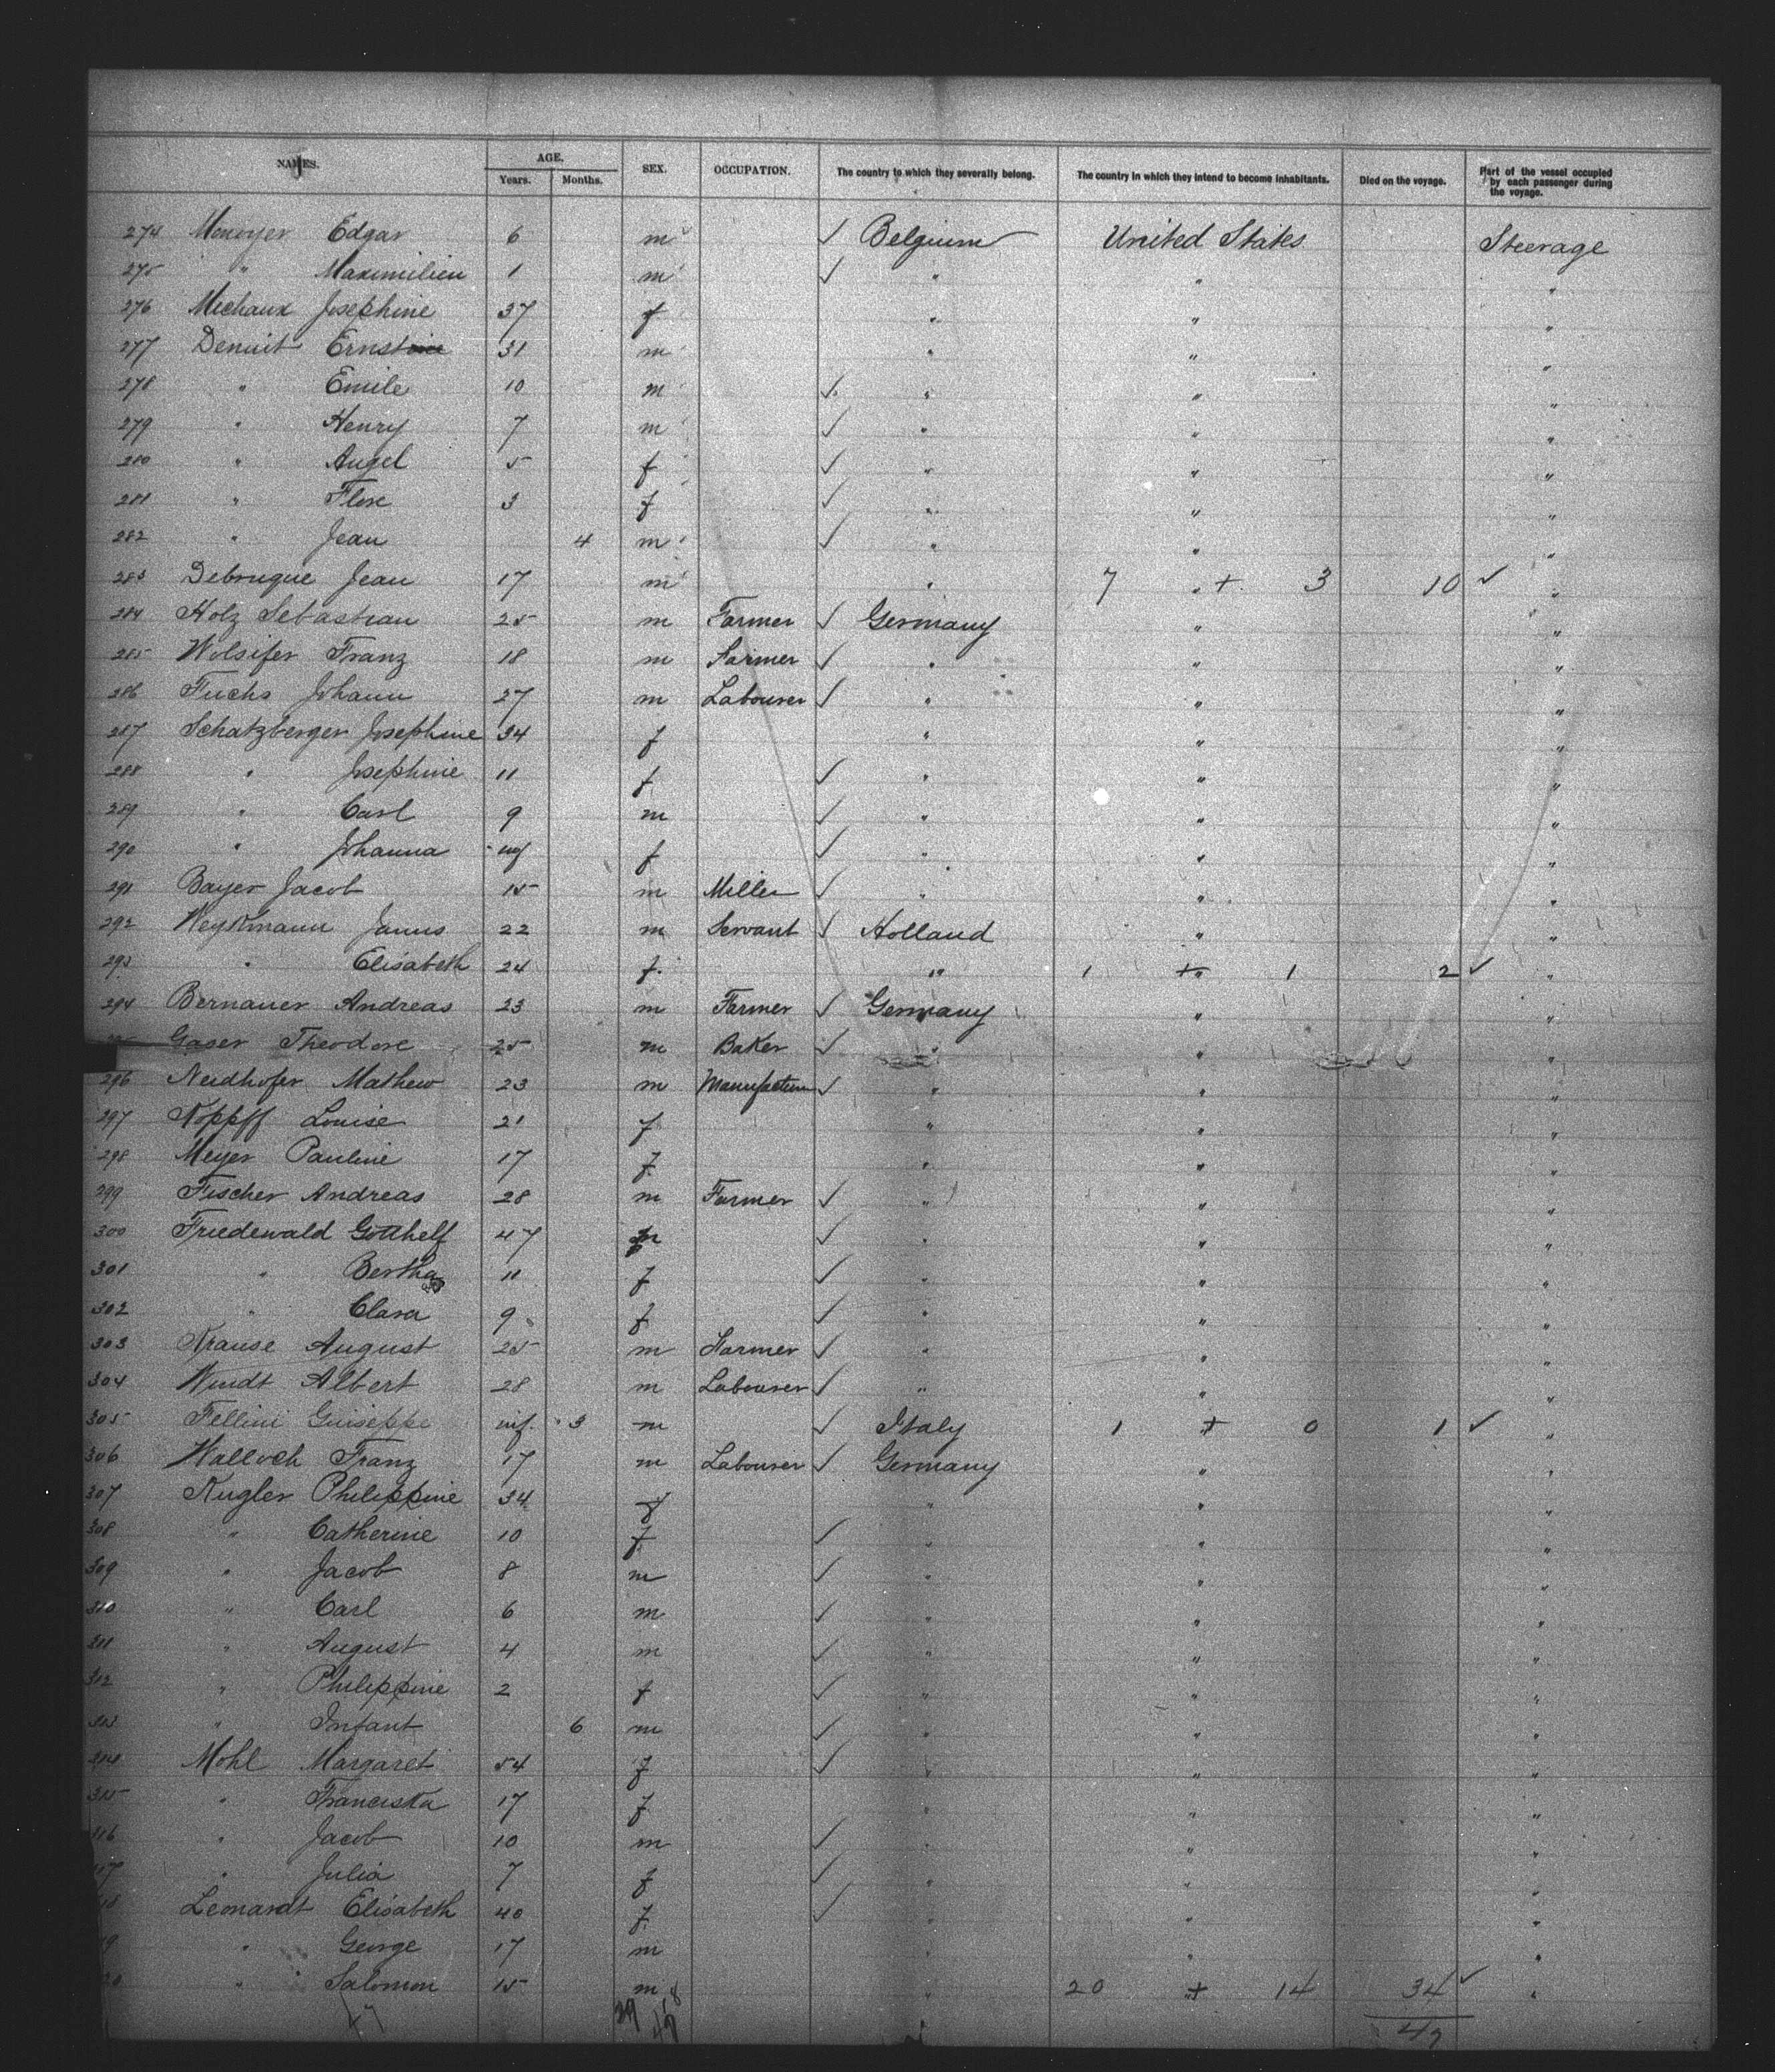 NAMES. AGE. SEX. OCCUPATION. The country to which they severally belong. The country in which they intend to become inhabitants. Died on the voyage. Part of the vessel occupied by each passenger during the voyage.
Years. Months.
274 Edgar 6 m ✓ Belgium United States Steerage
275 " Maximilien 1 m ✓ " " "
276 Michaux Josephine 37 f " " "
277 Denuit Ernst 31 m " " "
278 " Emile 10 m ✓ " " "
279 " Henry 7 m ✓ " " "
280 " Angel 5 f ✓ " " "
281 " Flore 3 f ✓ " " "
282 " Jean 4 m ✓ " " "
283 Debruque Jean 17 m " 7 " + 3 10 ✓ "
284 Holz Sebastian 25 m Farmer ✓ Germany " "
285 Wolsifer Franz 18 m Farmer ✓ " " "
286 Fuchs Johann 27 m Labourer ✓ " " "
287 Schatzberger Josephine 34 f " " "
288 " Josephine 11 f ✓ " " "
289 " Carl 9 m ✓ " " "
290 " Johanna inf f ✓ " " "
291 Bayer Jacob 15 m Miller ✓ " " "
292 Weytkmann Janus 22 m Servant ✓ Holland " "
293 " Elisabeth 24 f " 1 + " 1 2 ✓ "
294 Bernauer Andreas 23 m Farmer ✓ Germany " "
Gaser Theodore 25 m Baker ✓ " " "
296 Neidhofer Mathew 23 m Manufacturer ✓ " " "
297 Koppff Louise 21 f " " "
298 Meyer Pauline 17 f " " "
299 Fischer Andreas 28 m Farmer ✓ " " "
300 Friedewald Gotthelf 47 m ✓ " " "
301 " Bertha 11 f ✓ " " "
302 " Clara 9 f ✓ " " "
303 Krause August 25 m Farmer ✓ " " "
304 Windt Albert 28 m Labourer ✓ " " "
305 Fellini Guiseppe inf. 3 m ✓ Italy 1 + 0 1 ✓ "
306 Walloch Franz 17 m Labourer ✓ Germany " "
307 Kugler Philippine 34 f " " "
308 " Catherine 10 f ✓ " " "
309 " Jacob 8 m ✓ " " "
310 " Carl 6 m ✓ " " "
311 " August 4 m ✓ " " "
312 " Philippine 2 f ✓ " " "
313 " Infant 6 m ✓ " " "
314 Mohl Margaret 54 f ✓ " " "
315 " Franciska 17 f " " "
316 " Jacob 10 m ✓ " " "
17 " Julia 7 f ✓ " " "
18 Leonardt Elisabeth 40 f ✓ " " "
19 " George 17 m " " "
20 " Salomon 15 m " 20 " + 14 34 ✓ "
47 29 18 47